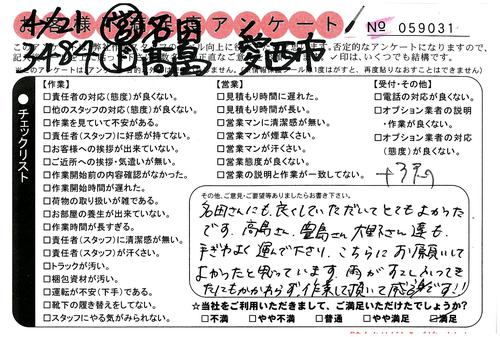 お客様満足度アンケート
No 059031
4/21 営 名田
愛西市
【作業】
□責任者の対応(態度)が良くない。
□他のスタッフの対応(態度)が良くない。
□作業を見ていて不安がある。
□責任者(スタッフ)に好感が持てない。
□お客様への挨拶が出来ていない。
□ご近所への挨拶・気遣いが無い。
□作業開始前の内容確認がなかった。
□作業開始時間が遅れた。
□荷物の取り扱いが雑である。
□お部屋の養生が出来ていない。
□作業時間が長すぎる。
□責任者(スタッフ)に清潔感が無い。
□責任者(スタッフ)が汗くさい。
□トラックが汚い。
□梱包資材が汚い。
□運転が不安(下手)である。
□靴下の履き替えをしてない。
□スタッフにやる気がみられない。
【営業】
□見積もり時間に遅れた。
□見積もり時間が長い。
□営業マンに清潔感が無い。
□営業マンが煙草くさい。
□営業マンが汗くさい。
□営業態度が良くない。
□営業の説明と作業が一致してない。
【受付・その他】
□電話の対応が良くない。
□オプション業者の説明
・作業が良くない。
□オプション業者の対応
(態度)が良くない。
●チェックリスト
その他、ご意見・ご要望等ありましたらお書き下さい。
名田さんにも良くしていただいてとてもよかった
です。高島さん、豊島さん、大野さん達も
手ぎわよく運んで下さり、こちらにお願いして
よかったと思っています。雨がすこしふってき
たにもかかわらず、作業して頂いて感謝です!!
☆当社をご利用いただきまして、ご満足いただけたでしょうか?
□不満 □やや不満 □普通 □やや満足 ☑満足